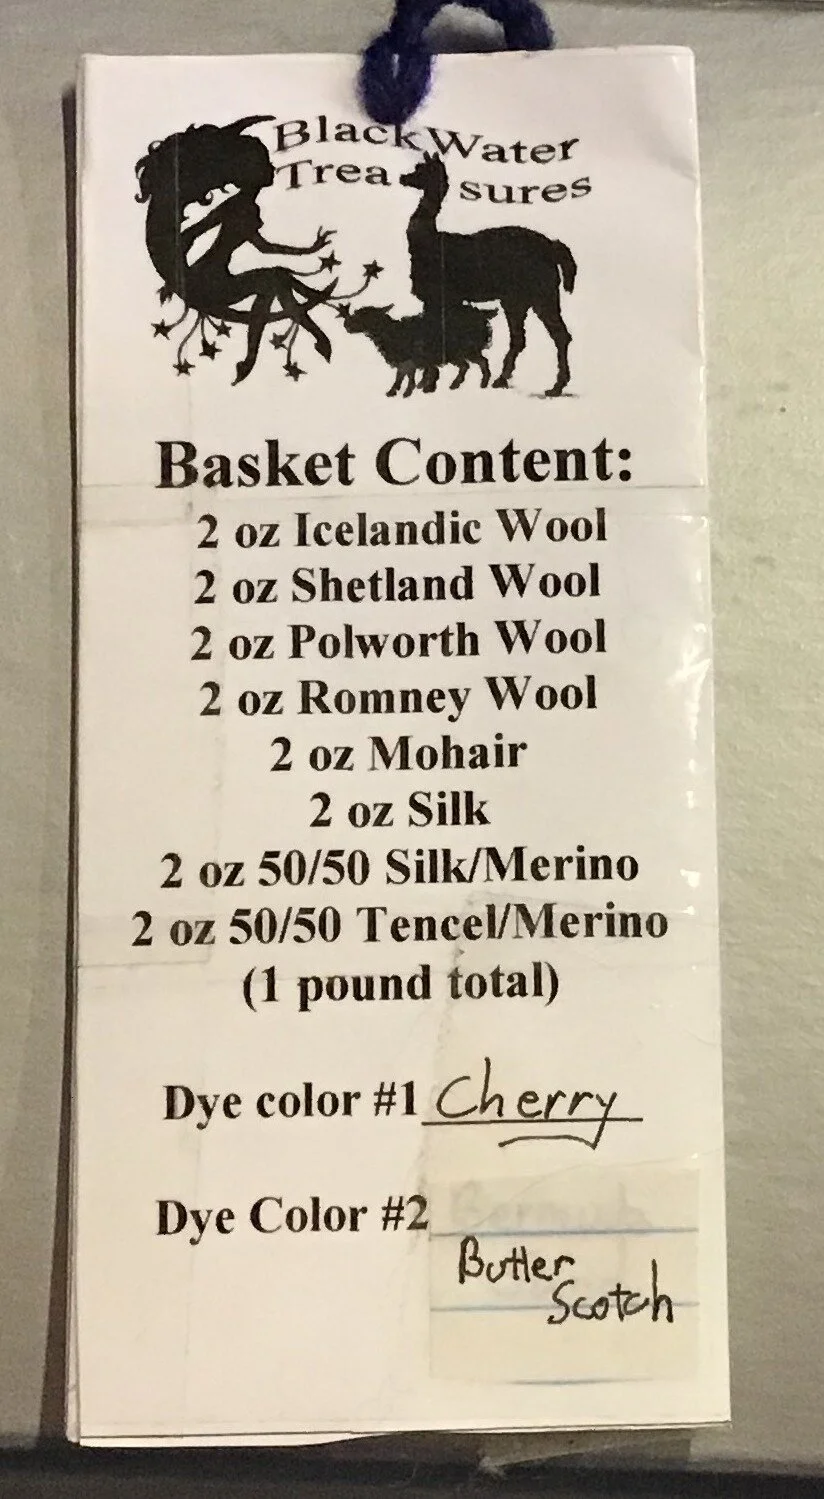 BlackWater
Treasures
Basket Content:
2 oz Icelandic Wool
2 oz Shetland Wool
2 oz Polworth Wool
2 oz Romney Wool
2 oz Mohair
2 oz Silk
2 oz 50/50 Silk/Merino
2 oz 50/50 Tencel/Merino
(1 pound total)
Dye color #1 Cherry
Dye Color #2
Butter
Scotch